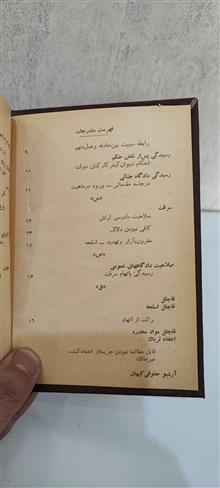 فهرست مندرجات
رابطه سببیت بین حادثه و عمل متهم
۹
رسیدگی پس از نقض حکم
احکام دیوان کیفر کارکنان دولت
۱۰
رسیدگی دادگاه جنائی
در جلسه مقدماتی — ورود در ماهیت
«س»
سرقت
صلاحیت دادرسی ارتش
۱۲
کافی نبودن دلائل
۱۳
مقرون بآزار و تهدید — اسلحه
۱۴
«ص»
صلاحیت دادگاههای عمومی
رسیدگی باتهام سرقت
۱۵
«ق»
قاچاق
قاچاق اسلحه
برائت از اتهام
۱۶
قاچاق مواد مخدره
اخفاء تریاک
قابل مطالبه نبودن جریمه از اخفاء کننده
غیر مالک
آرشیو حقوقی کیهان